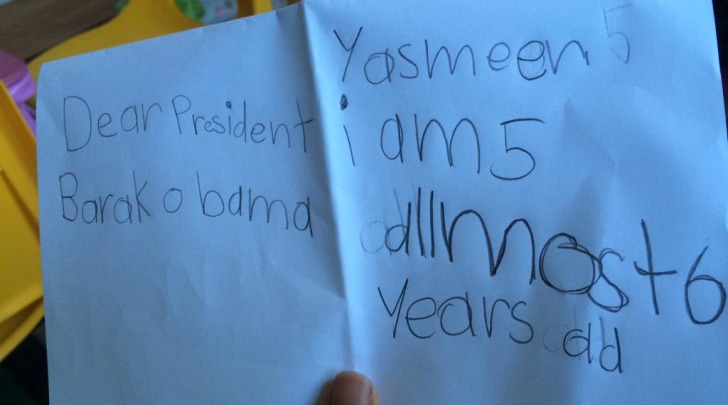 Dear President
Barak obama
Yasmeen 5
i am 5
allmost 6
years old